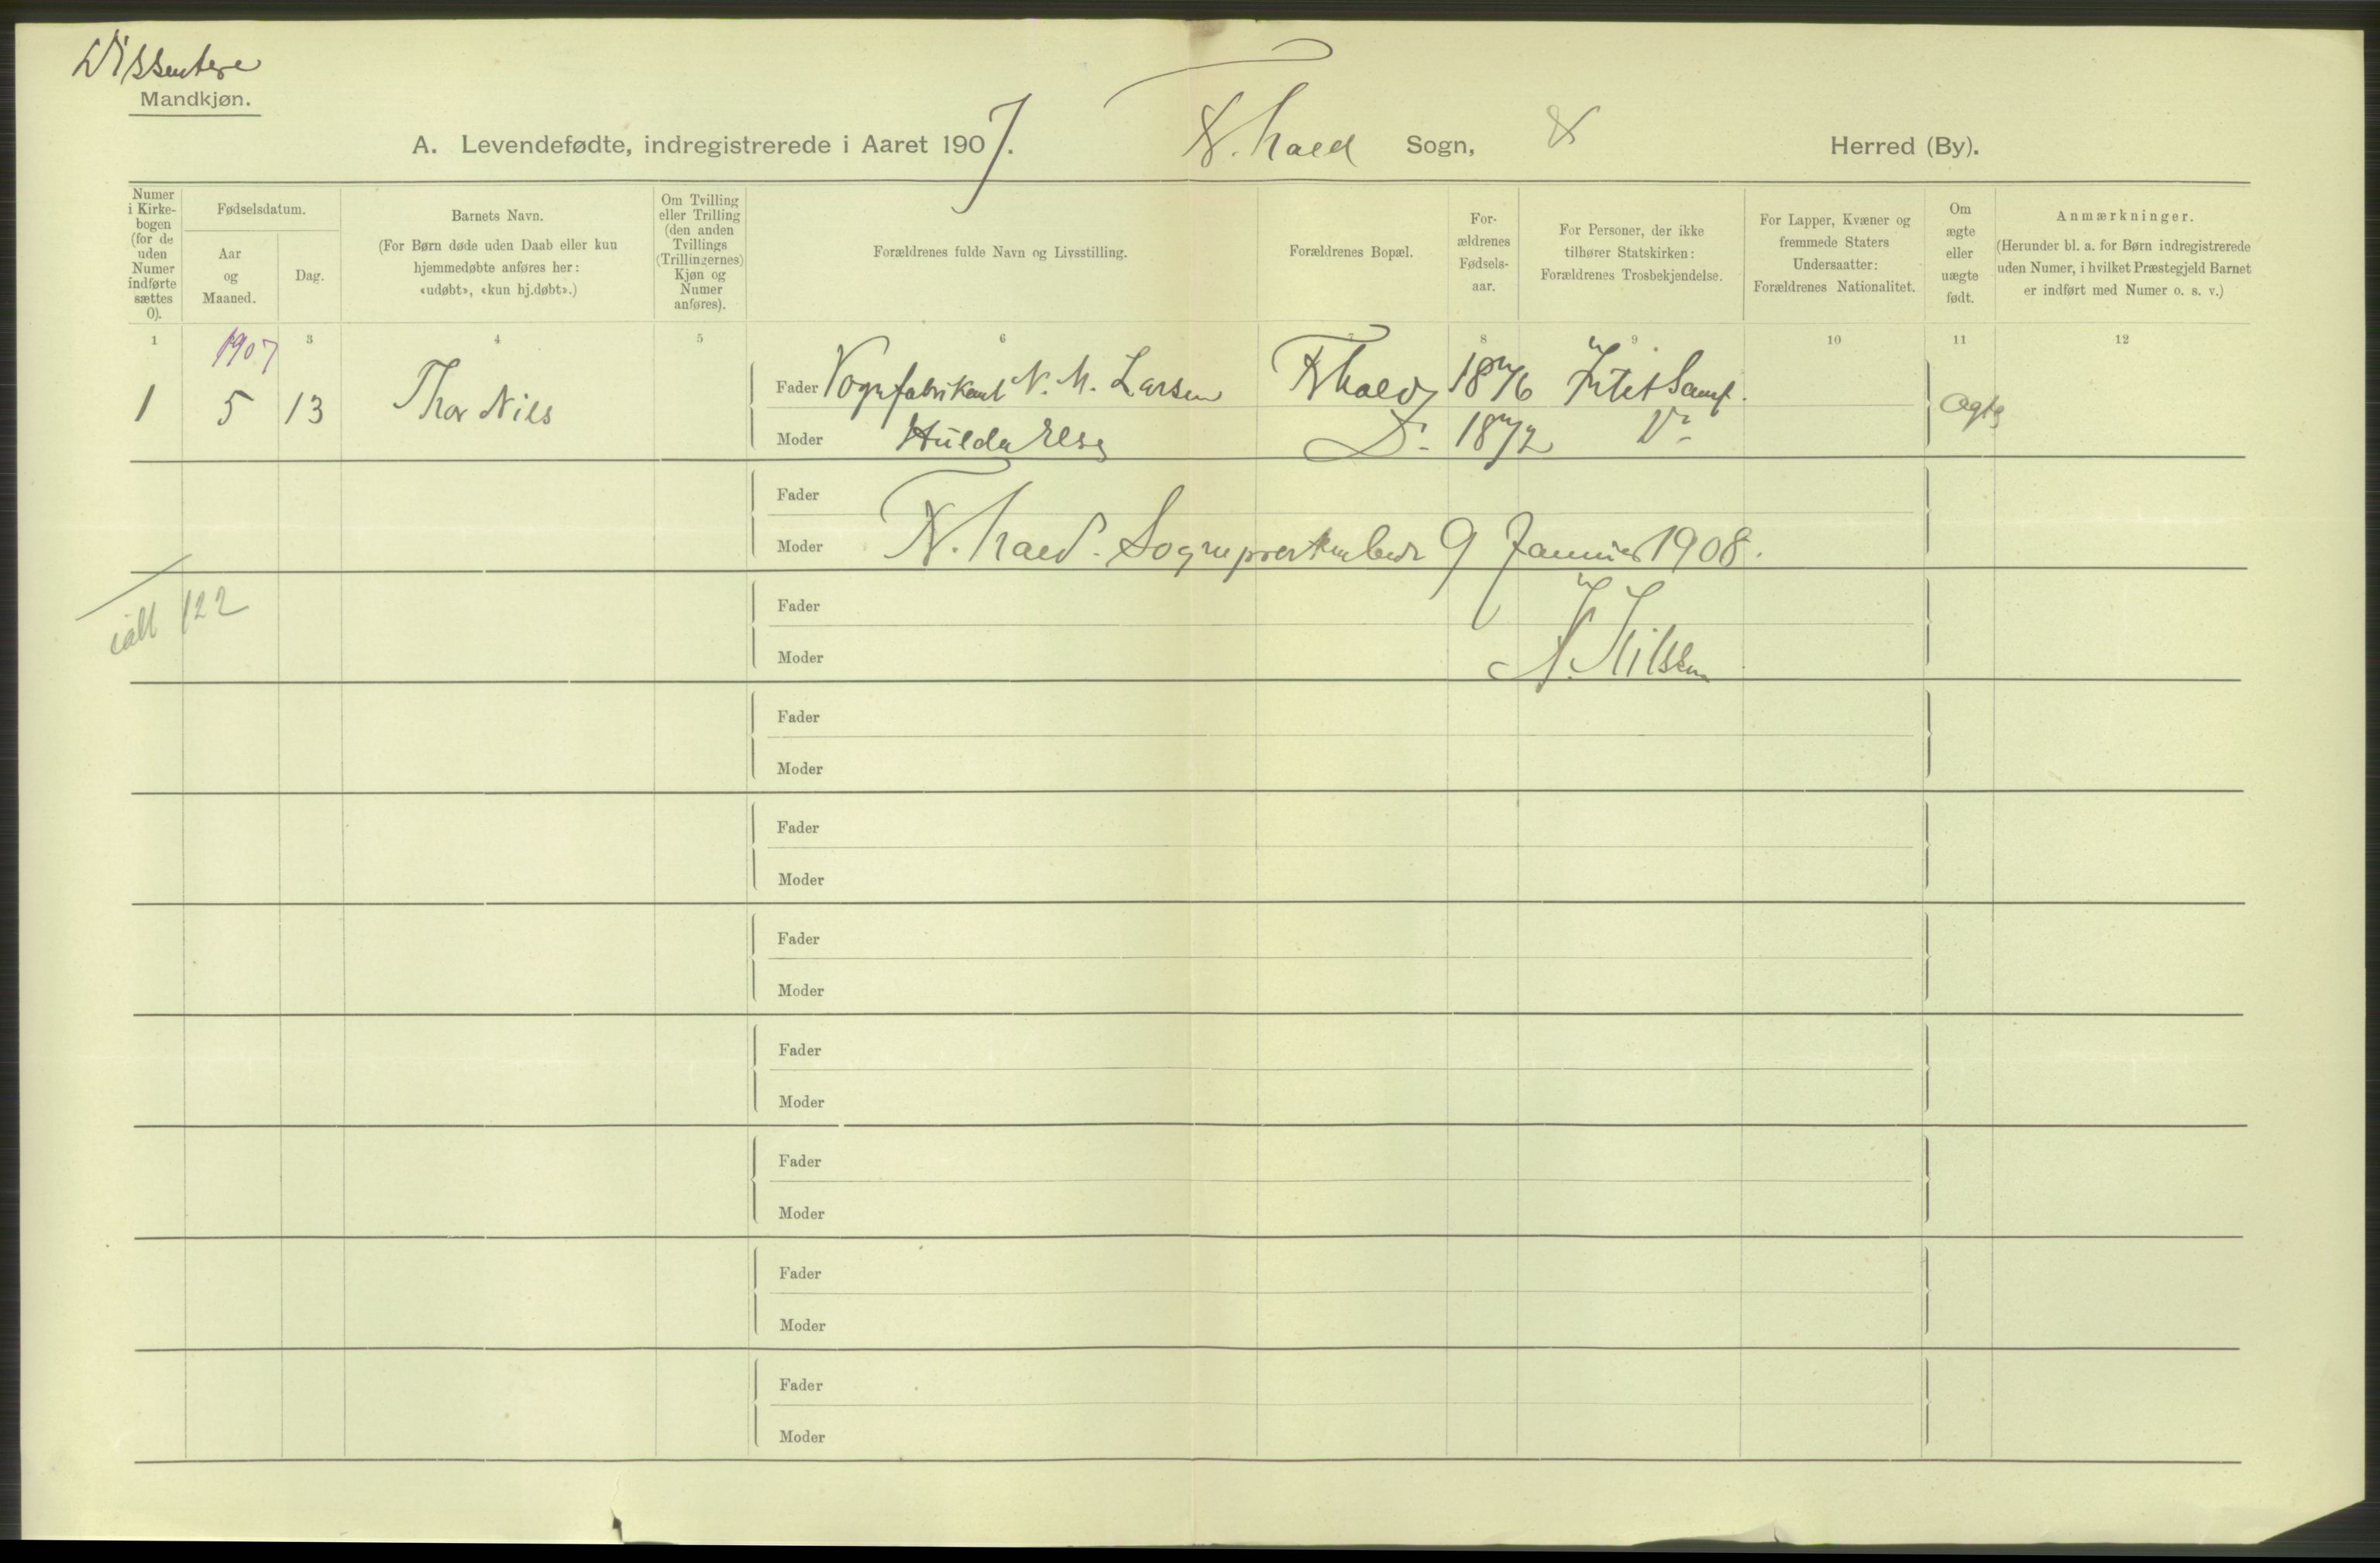 Dissentere
Mandkjøn.
A. Levendefødte, indregistrerede i Aaret 1907. Fr.hald Sogn, Herred (By).
Numer i Kirkebogen (for de uden Numer indførte sættes 0).
Fødselsdatum.
Aar og Maaned.
Dag.
Barnets Navn.
(For Børn døde uden Daab eller kun
hjemmedøbte anføres her:
«udøbt», «kun hj.døbt».)
Om Tvilling
eller Trilling
(den anden
Tvillings
(Trillingernes)
Kjøn og
Numer
anføres).
Forældrenes fulde Navn og Livsstilling.
Forældrenes Bopæl.
For-
ældrenes
Fødsels-
aar.
For Personer, der ikke
tilhører Statskirken:
Forældrenes Trosbekjendelse.
For Lapper, Kvæner og
fremmede Staters
Undersaatter:
Forældrenes Nationalitet.
Om
ægte
eller
uægte
født.
Anmærkninger.
(Herunder bl. a. for Børn indregistrerede
uden Numer, i hvilket Præstegjeld Barnet
er indført med Numer o. s. v.)
1 1907 3 4 5 6 7 8 9 10 11 12
1 5 13 Thor Nils Fader Vognfabrikant N. M. Larsen Fr.hald 1876 Samf. Ægte
Moder Hulda Elise D: 1872 Do
Fader
Moder Fr.hald Sogneprestembede 9 Januar 1908.
ialt 122
Fader
Moder N. Nilssen
Fader
Moder
Fader
Moder
Fader
Moder
Fader
Moder
Fader
Moder
Fader
Moder
Fader
Moder